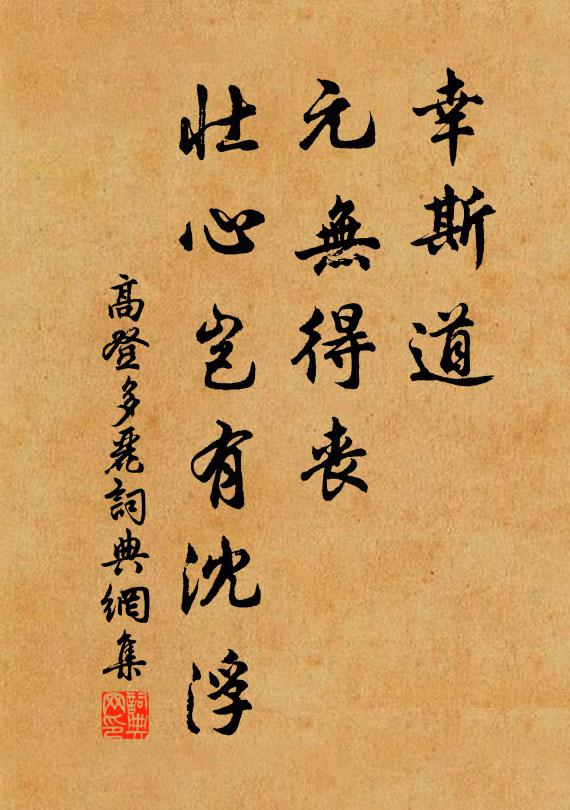 幸斯道
元無得喪
壯心豈有沈浮
高登多麗詞典網集
詞典網印